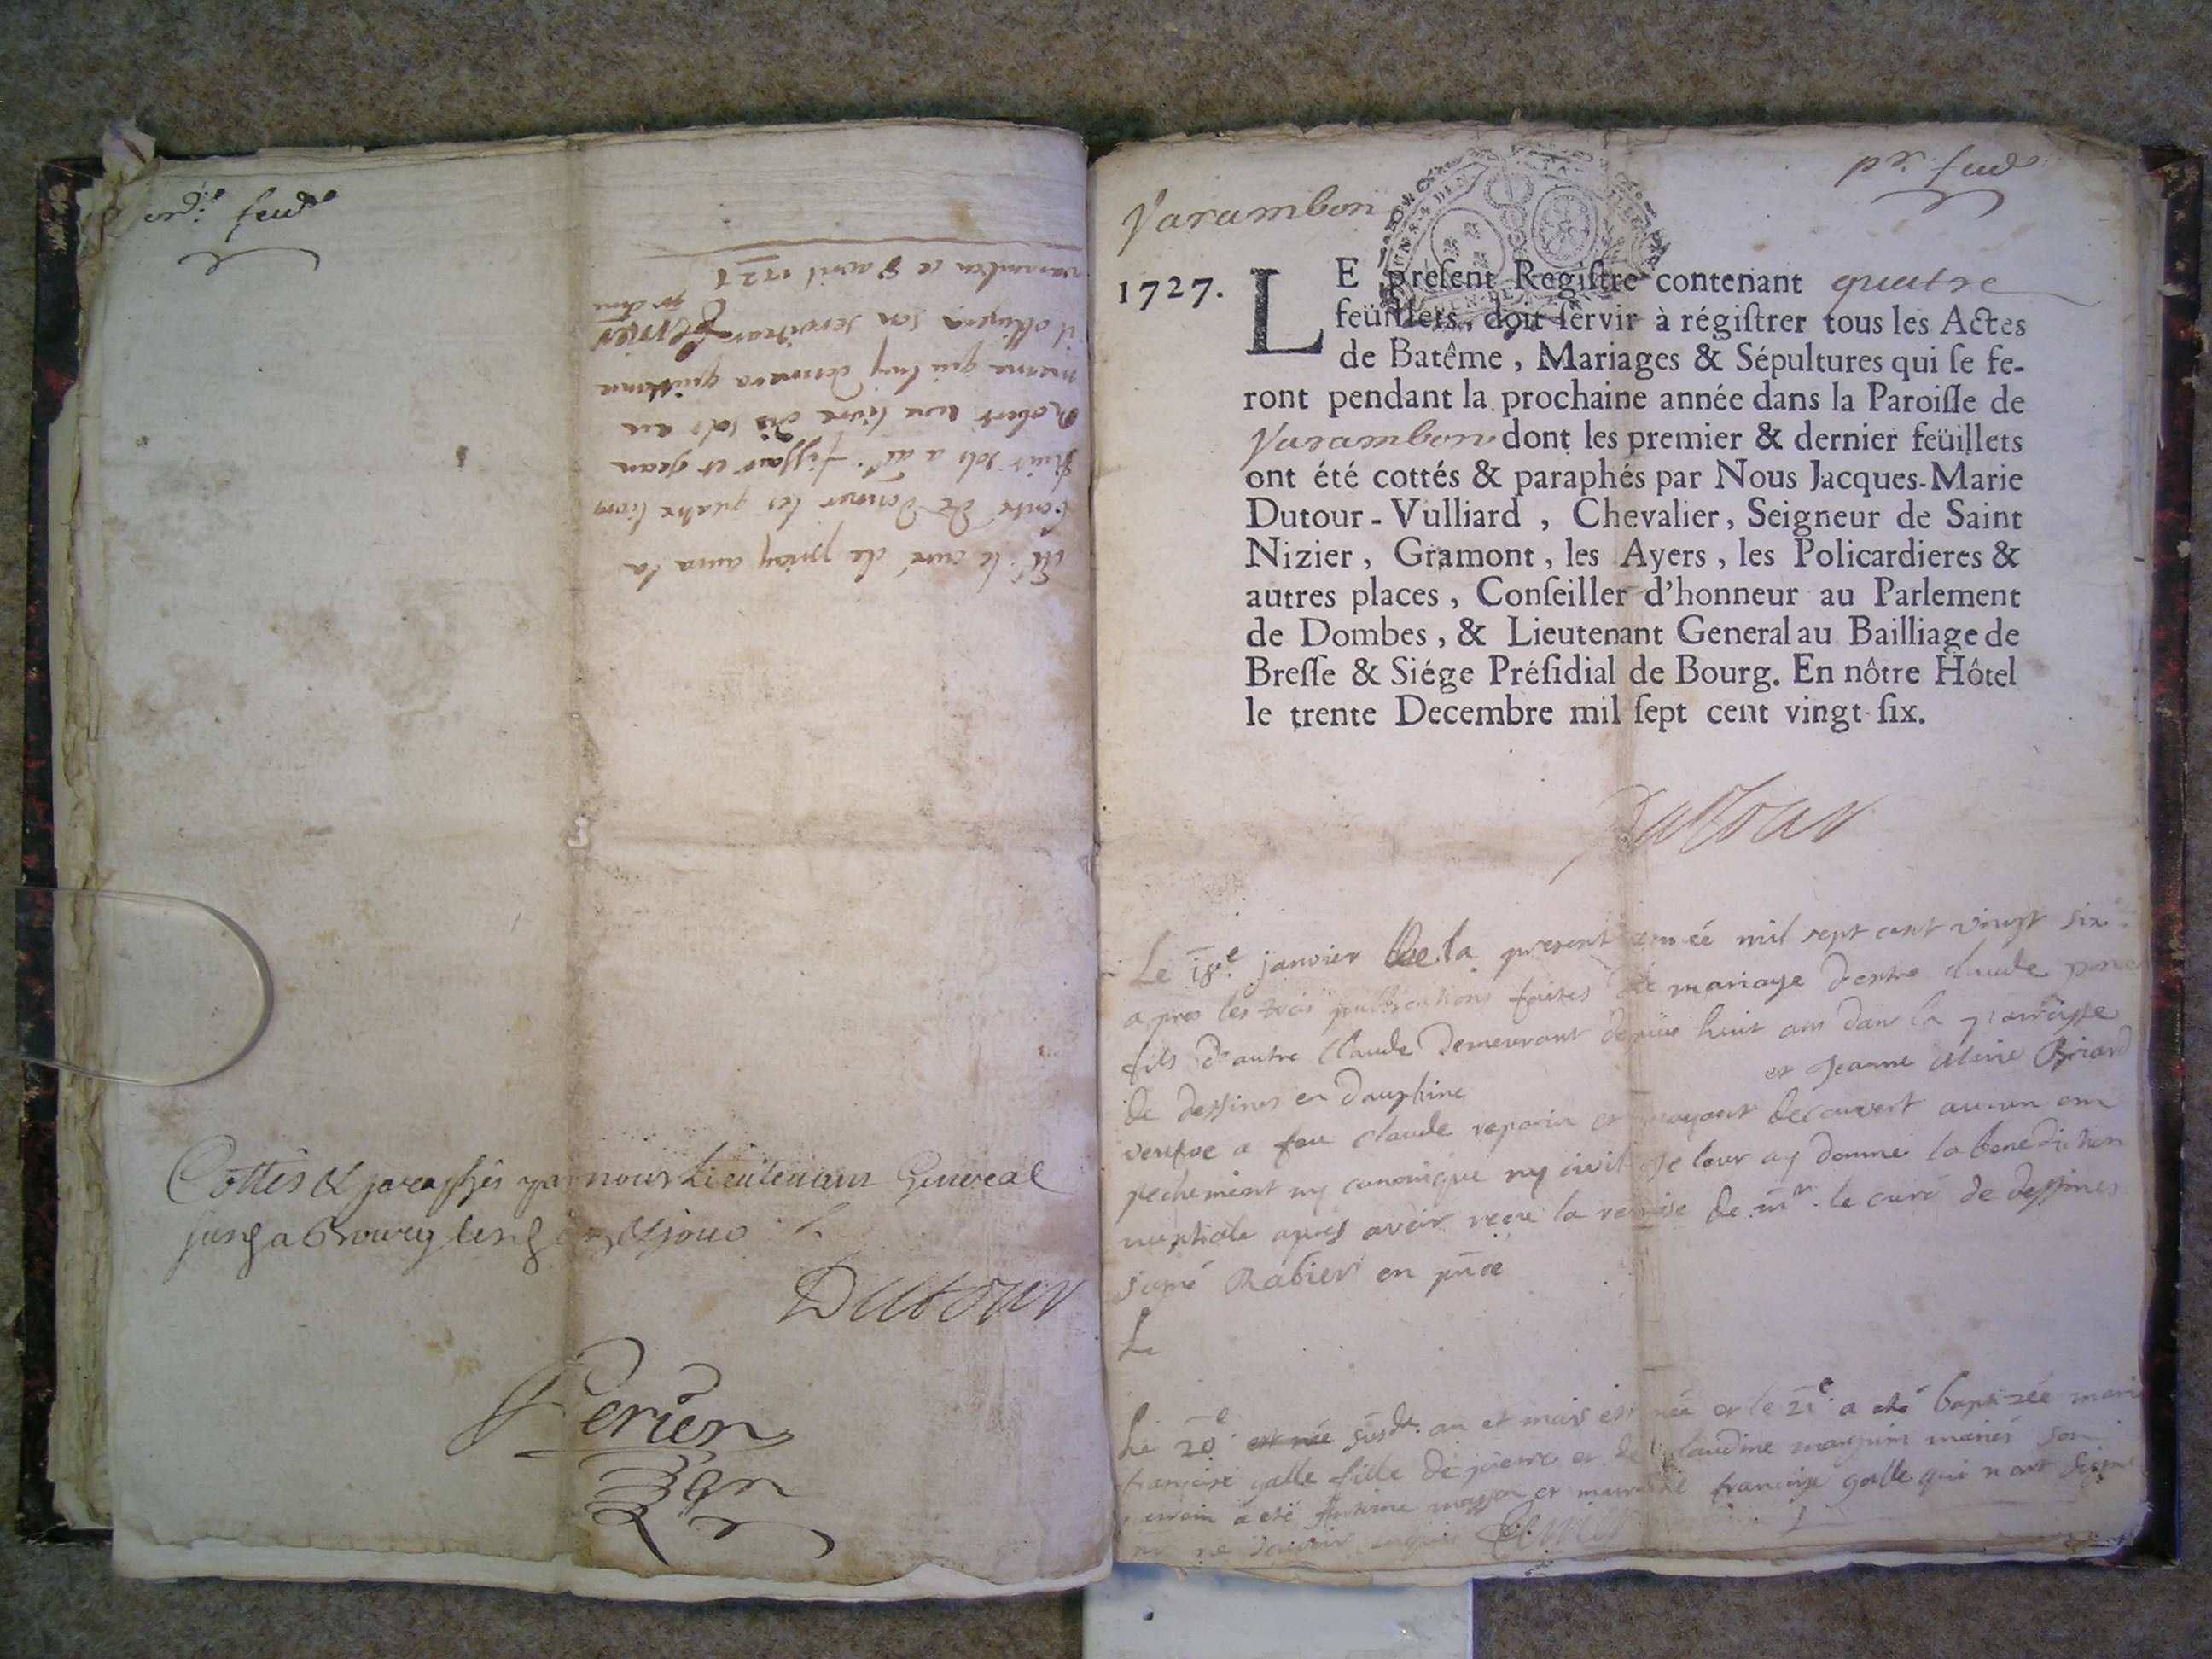 feuil
M.r le curé de priay aura la
bonté de donner les quatre livres
huit sols a et jean
Robert une livre dix sols au
qui luy donnera quittance
il obligera son serviteur
varambon ce 8 avril 1727
Cottés & paraphés par nous Lieutenant General
Dutour
Perier
Varambon
pr. feuil
1727. LE preſent Regiſtre contenant quatre
feüillets, doit ſervir à régiſtrer tous les Actes
de Batême, Mariages & Sépultures qui ſe fe-
ront pendant la prochaine année dans la Paroiſſe de
Varambon dont les premier & dernier feüillets
ont été cottés & paraphés par Nous Jacques-Marie
Dutour-Vulliard, Chevalier, Seigneur de Saint
Nizier, Gramont, les Ayers, les Policardieres &
autres places, Conſeiller d'honneur au Parlement
de Dombes, & Lieutenant General au Bailliage de
Breſſe & Siége Préſidial de Bourg. En nôtre Hôtel
le trente Decembre mil ſept cent vingt-ſix.
Dutour
Le 18e janvier de la present année mil sept cent vingt six
apres les trois publications faites de mariage d'entre claude
fils d'autre Claude demeurant depuis huit ans dans la parroisse
de dessines en dauphine et Jeanne Marie Briard
veufve a feu claude et n'ayant decouvert aucun em
pechement ny canonique ny civil je leur ay donné la benediction
nuptiale apres avoir receu la remise de mr. le curé de dessines
signé Rabier en
Le
Le 20e est née susdt. an et mois est née et le 21e a été baptizée marie
françoise galle fille de pierre et de claudine mariés son
parrain a été Antoine et marraine françoise galle qui n'ont signé